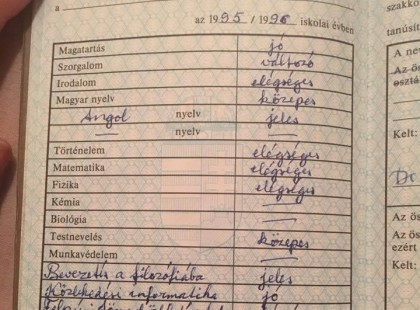 a
az 1995 / 1996 iskolai évben
Magatartás jó
Szorgalom változó
Irodalom elégséges
Magyar nyelv közepes
Angol nyelv jeles
— nyelv —
Történelem elégséges
Matematika elégséges
Fizika elégséges
Kémia —
Biológia —
Testnevelés közepes
Munkavédelem —
Bevezetés a filozófiába jeles
Közlekedési informatika jó
szakkö
tanúsít
A ne
Az ös
osztá
Kelt:
Dr
Az ös
Az ös
ezért
Kelt: